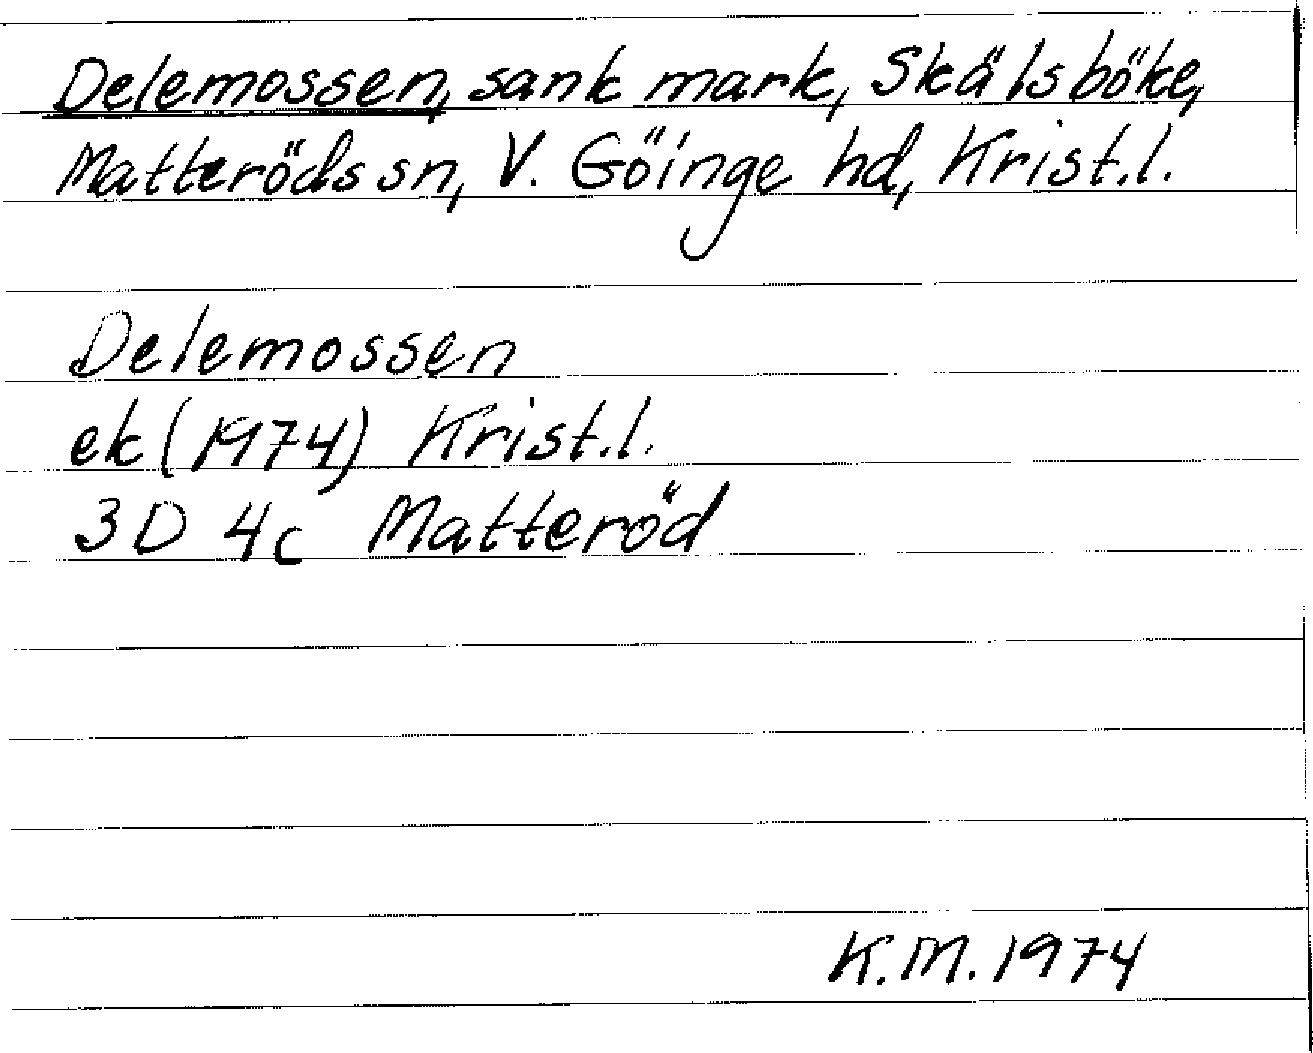 Delemossen, sank mark, Skälsböke,
Matteröds sn, V. Göinge hd, Krist.l.
Delemossen
ek (1974) Krist.l.
3D 4c Matteröd
K.M. 1974